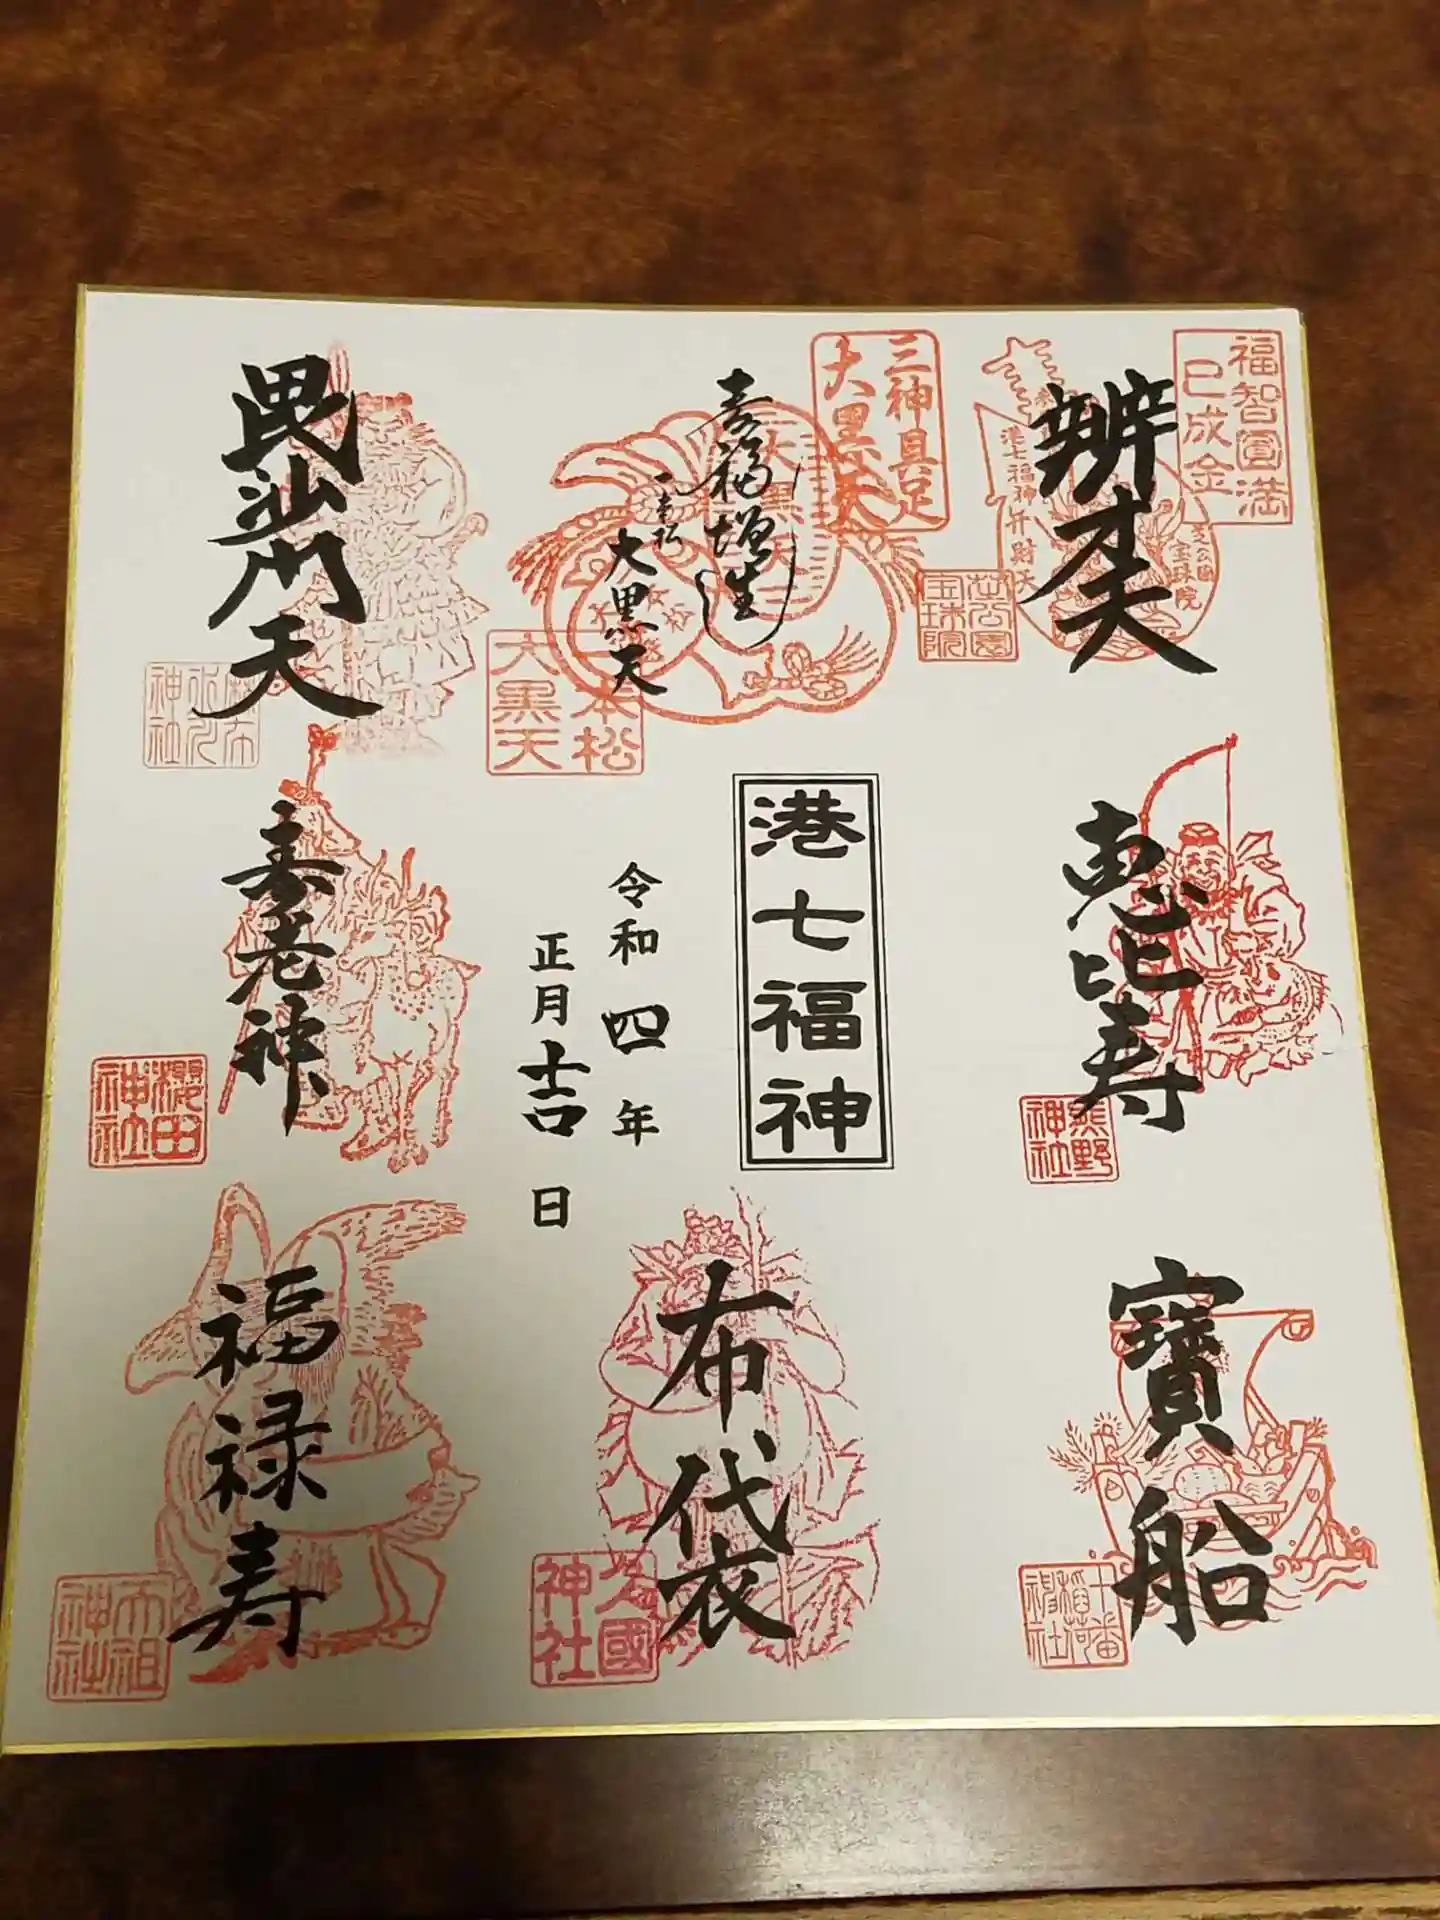 福智圓満
已成金
辨才天
港七福神弁財天
芝公園
宝珠院
芝公園
宝珠院
三神具足
大黒天
寿福増生
一本松
大黒天
本松
大黒天
毘沙門天
氷川
神社
恵比寿
熊野
神社
港七福神
令和四年
正月吉日
寿老神
櫻田
神社
寶船
十番
稲荷
布袋
久國
神社
福禄寿
天祖
神社